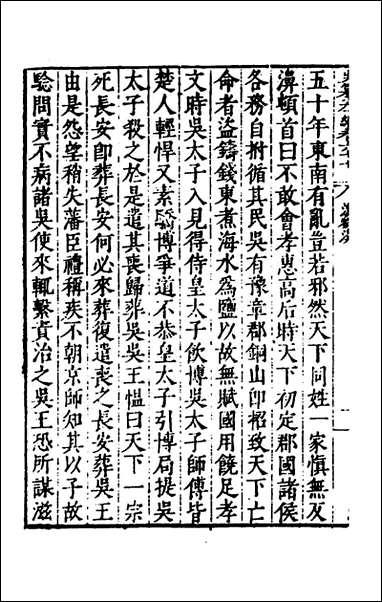 五十年東南有亂豈若邪然天下同姓一家愼無反
濞頓首曰不敢會孝惠高后時天下初定郡國諸侯
各務自拊循其民吳有豫章郡銅山卽招致天下亡
命者盜鑄錢東煮海水為鹽以故無賦國用饒足孝
文時吳太子入見得侍皇太子飲博吳太子師傅皆
楚人輕悍又素驕博爭道不恭皇太子引博局提吳
太子殺之於是遣其喪歸葬吳吳王慍曰天下一宗
死長安卽葬長安何必來葬復遣喪之長安葬吳王
由是怨望稍失藩臣禮稱疾不朝京師知其以子故
驗問實不病諸吳使來輒繫責治之吳王恐所謀滋